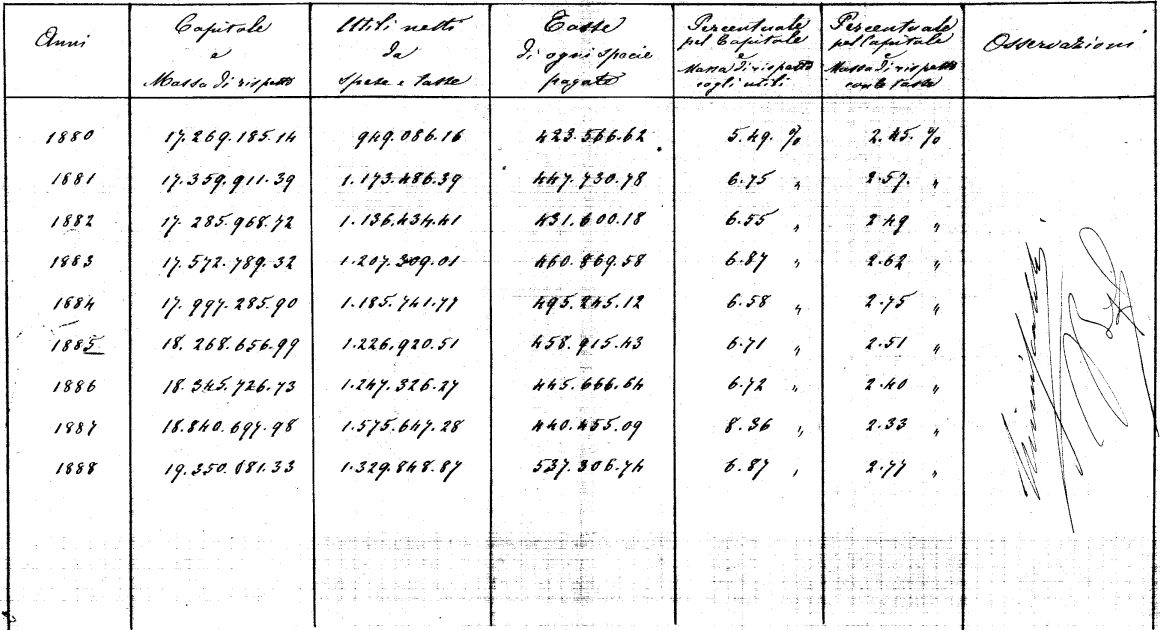 Anni Capitale e Massa di rispetto Utili netti da spese e tasse Tasse di ogni specie pagate Percentuale pel Capitale e Massa di rispetto cogli utili Percentuale pel Capitale e Massa di rispetto con le tasse Osservazioni
1880 17.269.185.14 949.086.16 423.566.62 5.49.% 2.45.%
1881 17.359.911.39 1.173.486.39 447.730.78 6.75 " 2.57. "
1882 17.285.968.72 1.136.434.41 431.600.18 6.55 " 2.49 "
1883 17.572.789.32 1.207.309.01 460.869.58 6.87 " 2.62 "
1884 17.997.285.90 1.185.741.77 495.245.12 6.58 " 2.75 "
1885 18.268.656.99 1.226.920.51 458.915.43 6.71 " 2.51 "
1886 18.345.726.73 1.247.326.27 445.666.64 6.72 " 2.40 "
1887 18.840.697.98 1.575.647.28 440.455.09 8.36 " 2.33 "
1888 19.350.081.33 1.329.848.87 537.306.74 6.87 " 2.77 "